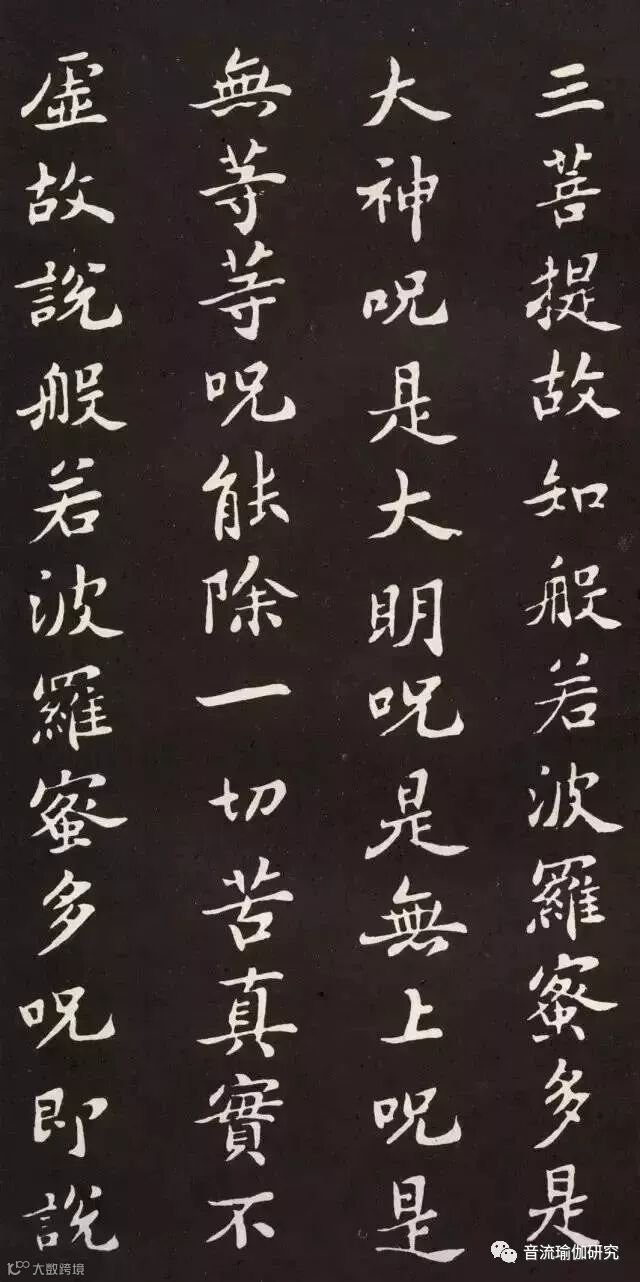 三菩提故知般若波羅蜜多是
大神呪是大明呪是無上呪是
無等等呪能除一切苦真實不
虛故說般若波羅蜜多呪即說
大数跨境
音流瑜伽研究